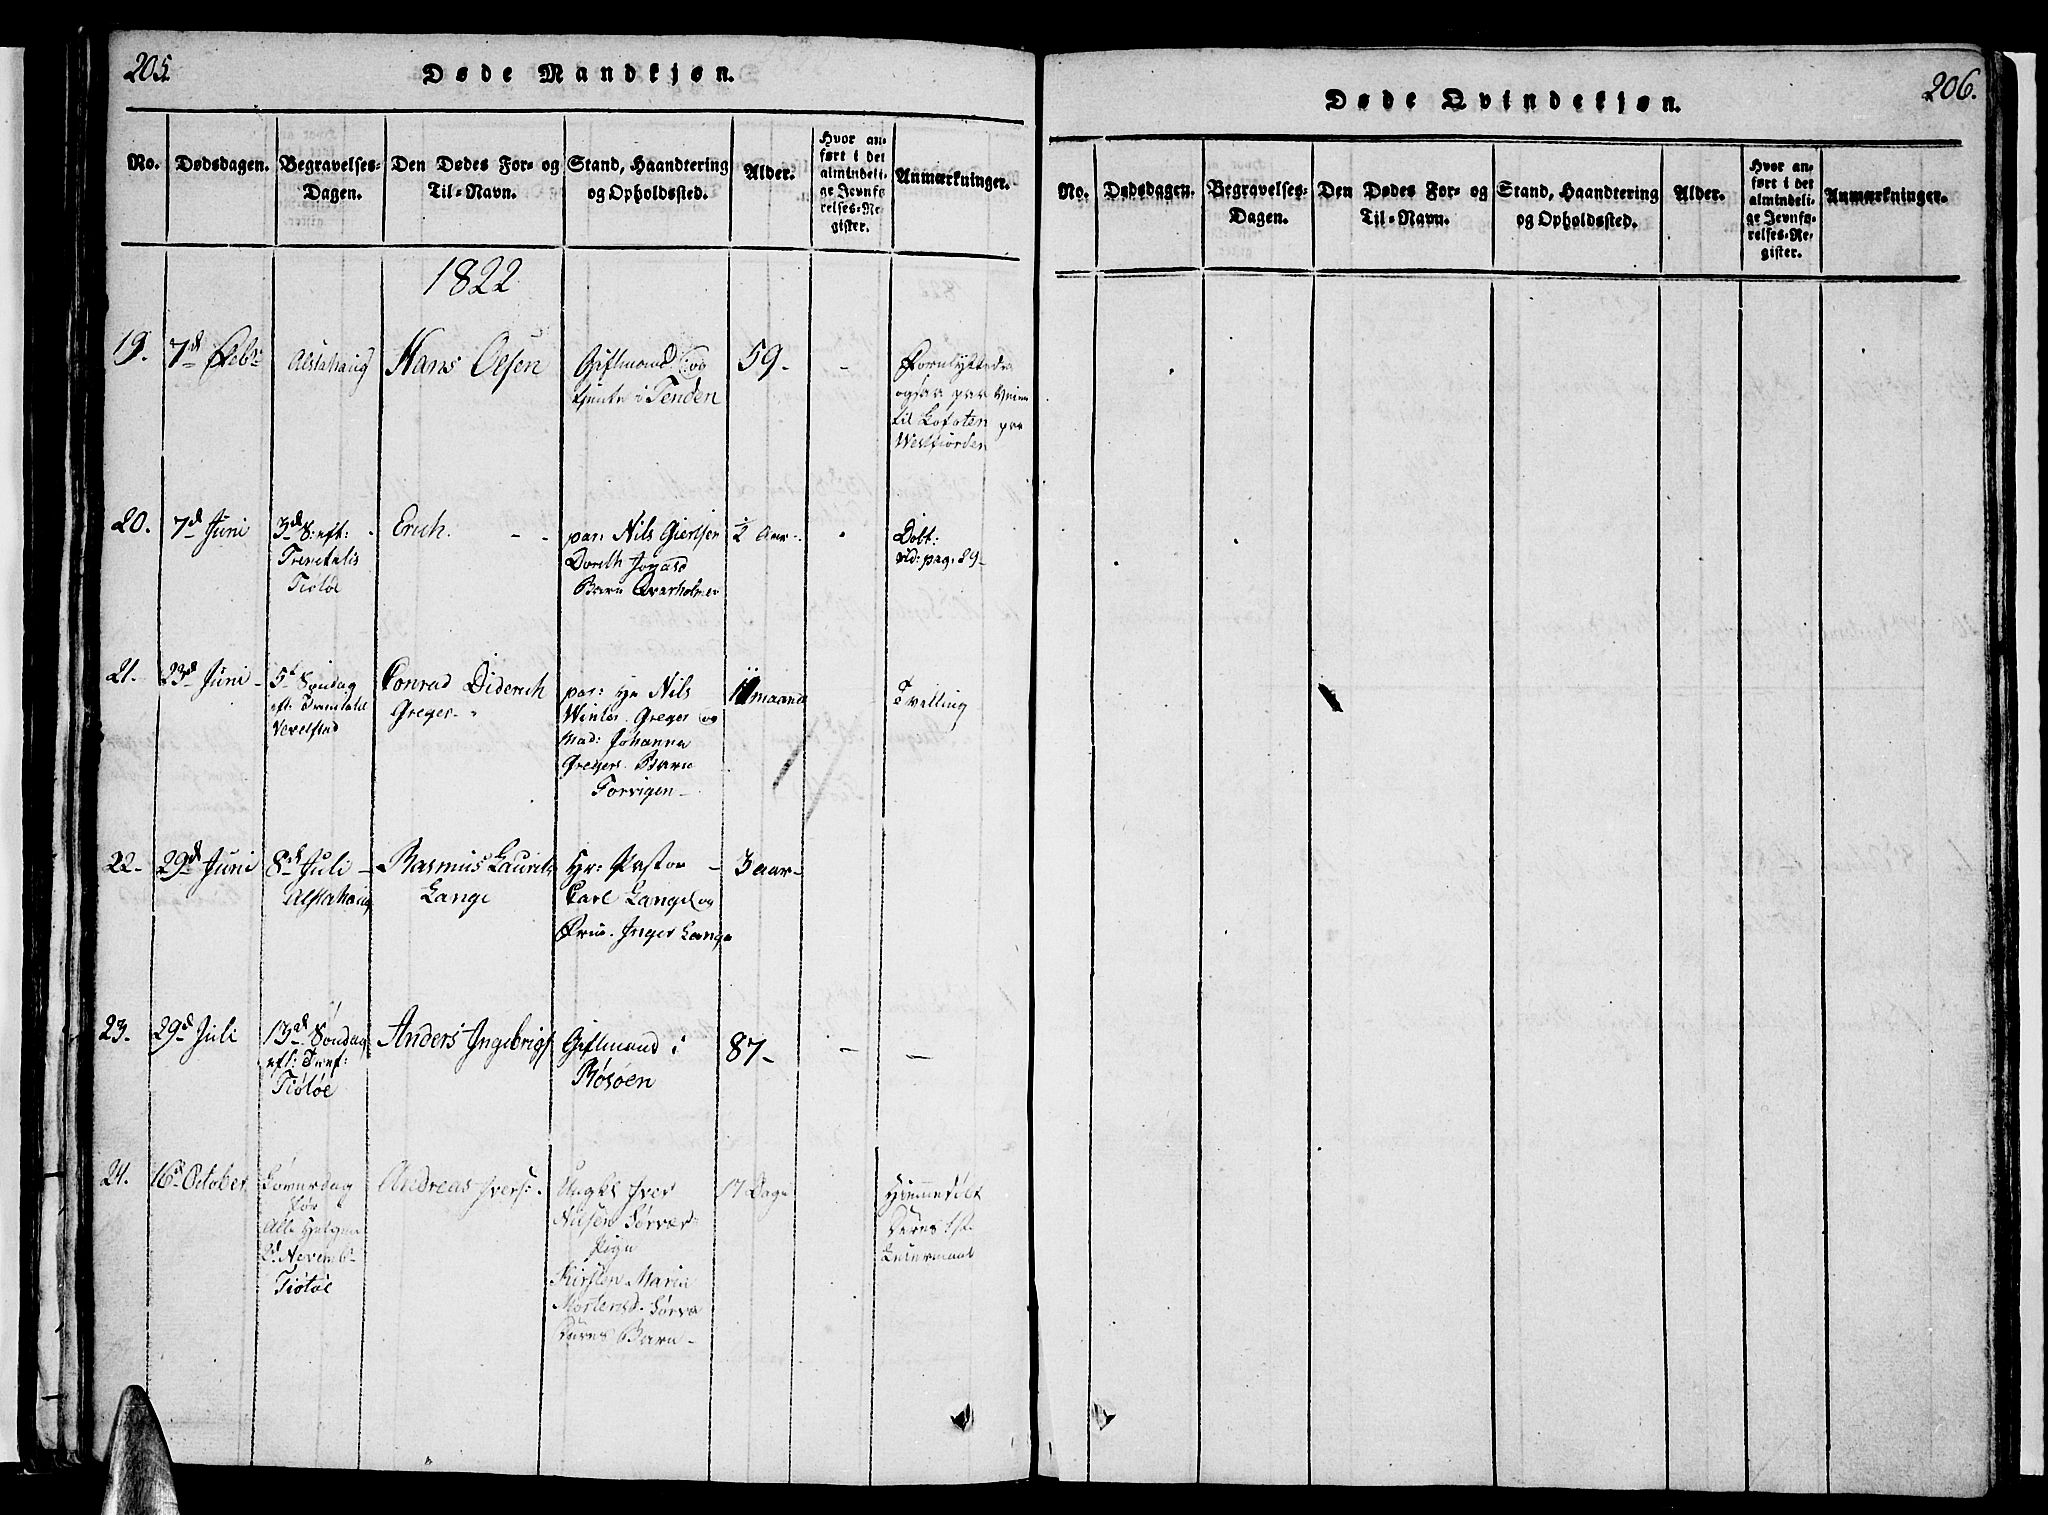 205.
Døde Mandkjøn.
No.
Dødsdagen.
Begravelses-
Dagen.
Den Dødes For- og
Til-Navn.
Stand, Haandtering
og Opholdssted.
Alder.
Hvor an-
ført i det
almindeli-
ge Jevnfø-
relses-Re-
gister.
Anmærkninger.
1822
19.
7d Febr
Alstahaug
Hans Olsen
Giftmand og
tjente i Tenden
59-
-
ogsaa paa Veien
til Lofoten paa
Westfiorden
20.
7d Juni
3d S: eft:
Trinitatis
Tiøtøe
Erich.
par: Nils Giertsen
Dorth Jonasd
Barn Qvarholmen
1/2 Aar-
Døbt:
vid: pag: 89-
21.
23d Juni
5t Søndag
eft: Trinitatis
Vevelstad
Conrad Diderich
Greger-
par: Hr Nils
Winter Greger og
Mad: Johanna
Gregers Barn
Forvigen-
11 maaned
Tvelling
22-
29d Juni
8d Juli
Alstahaug
Rasmus Laurits
Lange
Hr: Pastor
Carl Lange og
Frue. Inger Lange
3 aar-
23.
29d Juli
13d Søndag
eft: Trinit:
Tiøtøe
Anders Ingebrigts
Giftmand i
Røsøen
87-
24.
16d October
Løverdag
før
Alle Helgen
2d Novemb-
Tiøtøe
Andreas Ivers:
Ungkl Iver
Nilsen Sørvær
Pige
Kirsten Maria
Mortensd. Sørvær
Deres Barn-
17 Dage
Deres 1ste
Leiermaal
206.
Døde Qvindekjøn.
No.
Dødsdagen.
Begravelses-
Dagen.
Den Dødes For- og
Til-Navn.
Stand, Haandtering
og Opholdssted.
Alder.
Hvor an-
ført i det
almindeli-
ge Jevnfø-
relses-Re-
gister.
Anmærkninger.